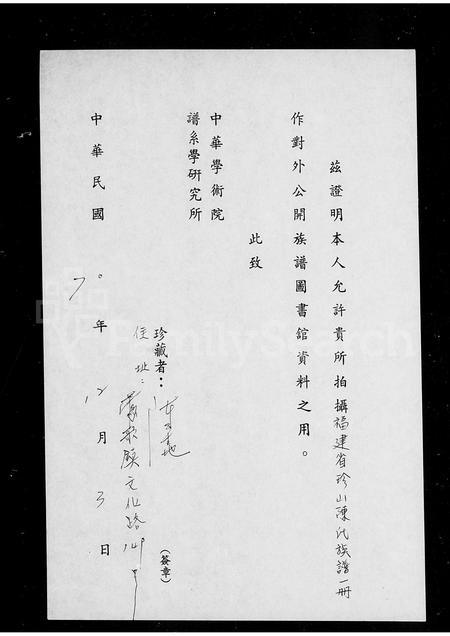 茲證明本人允許貴所拍攝福建省珍山陳氏族譜一冊
作對外公開族譜圖書館資料之用。
此致
中華學術院
譜系學研究所
珍藏者：
（簽章）
住址：文化路
中華民國70年12月3日
FamilySearch